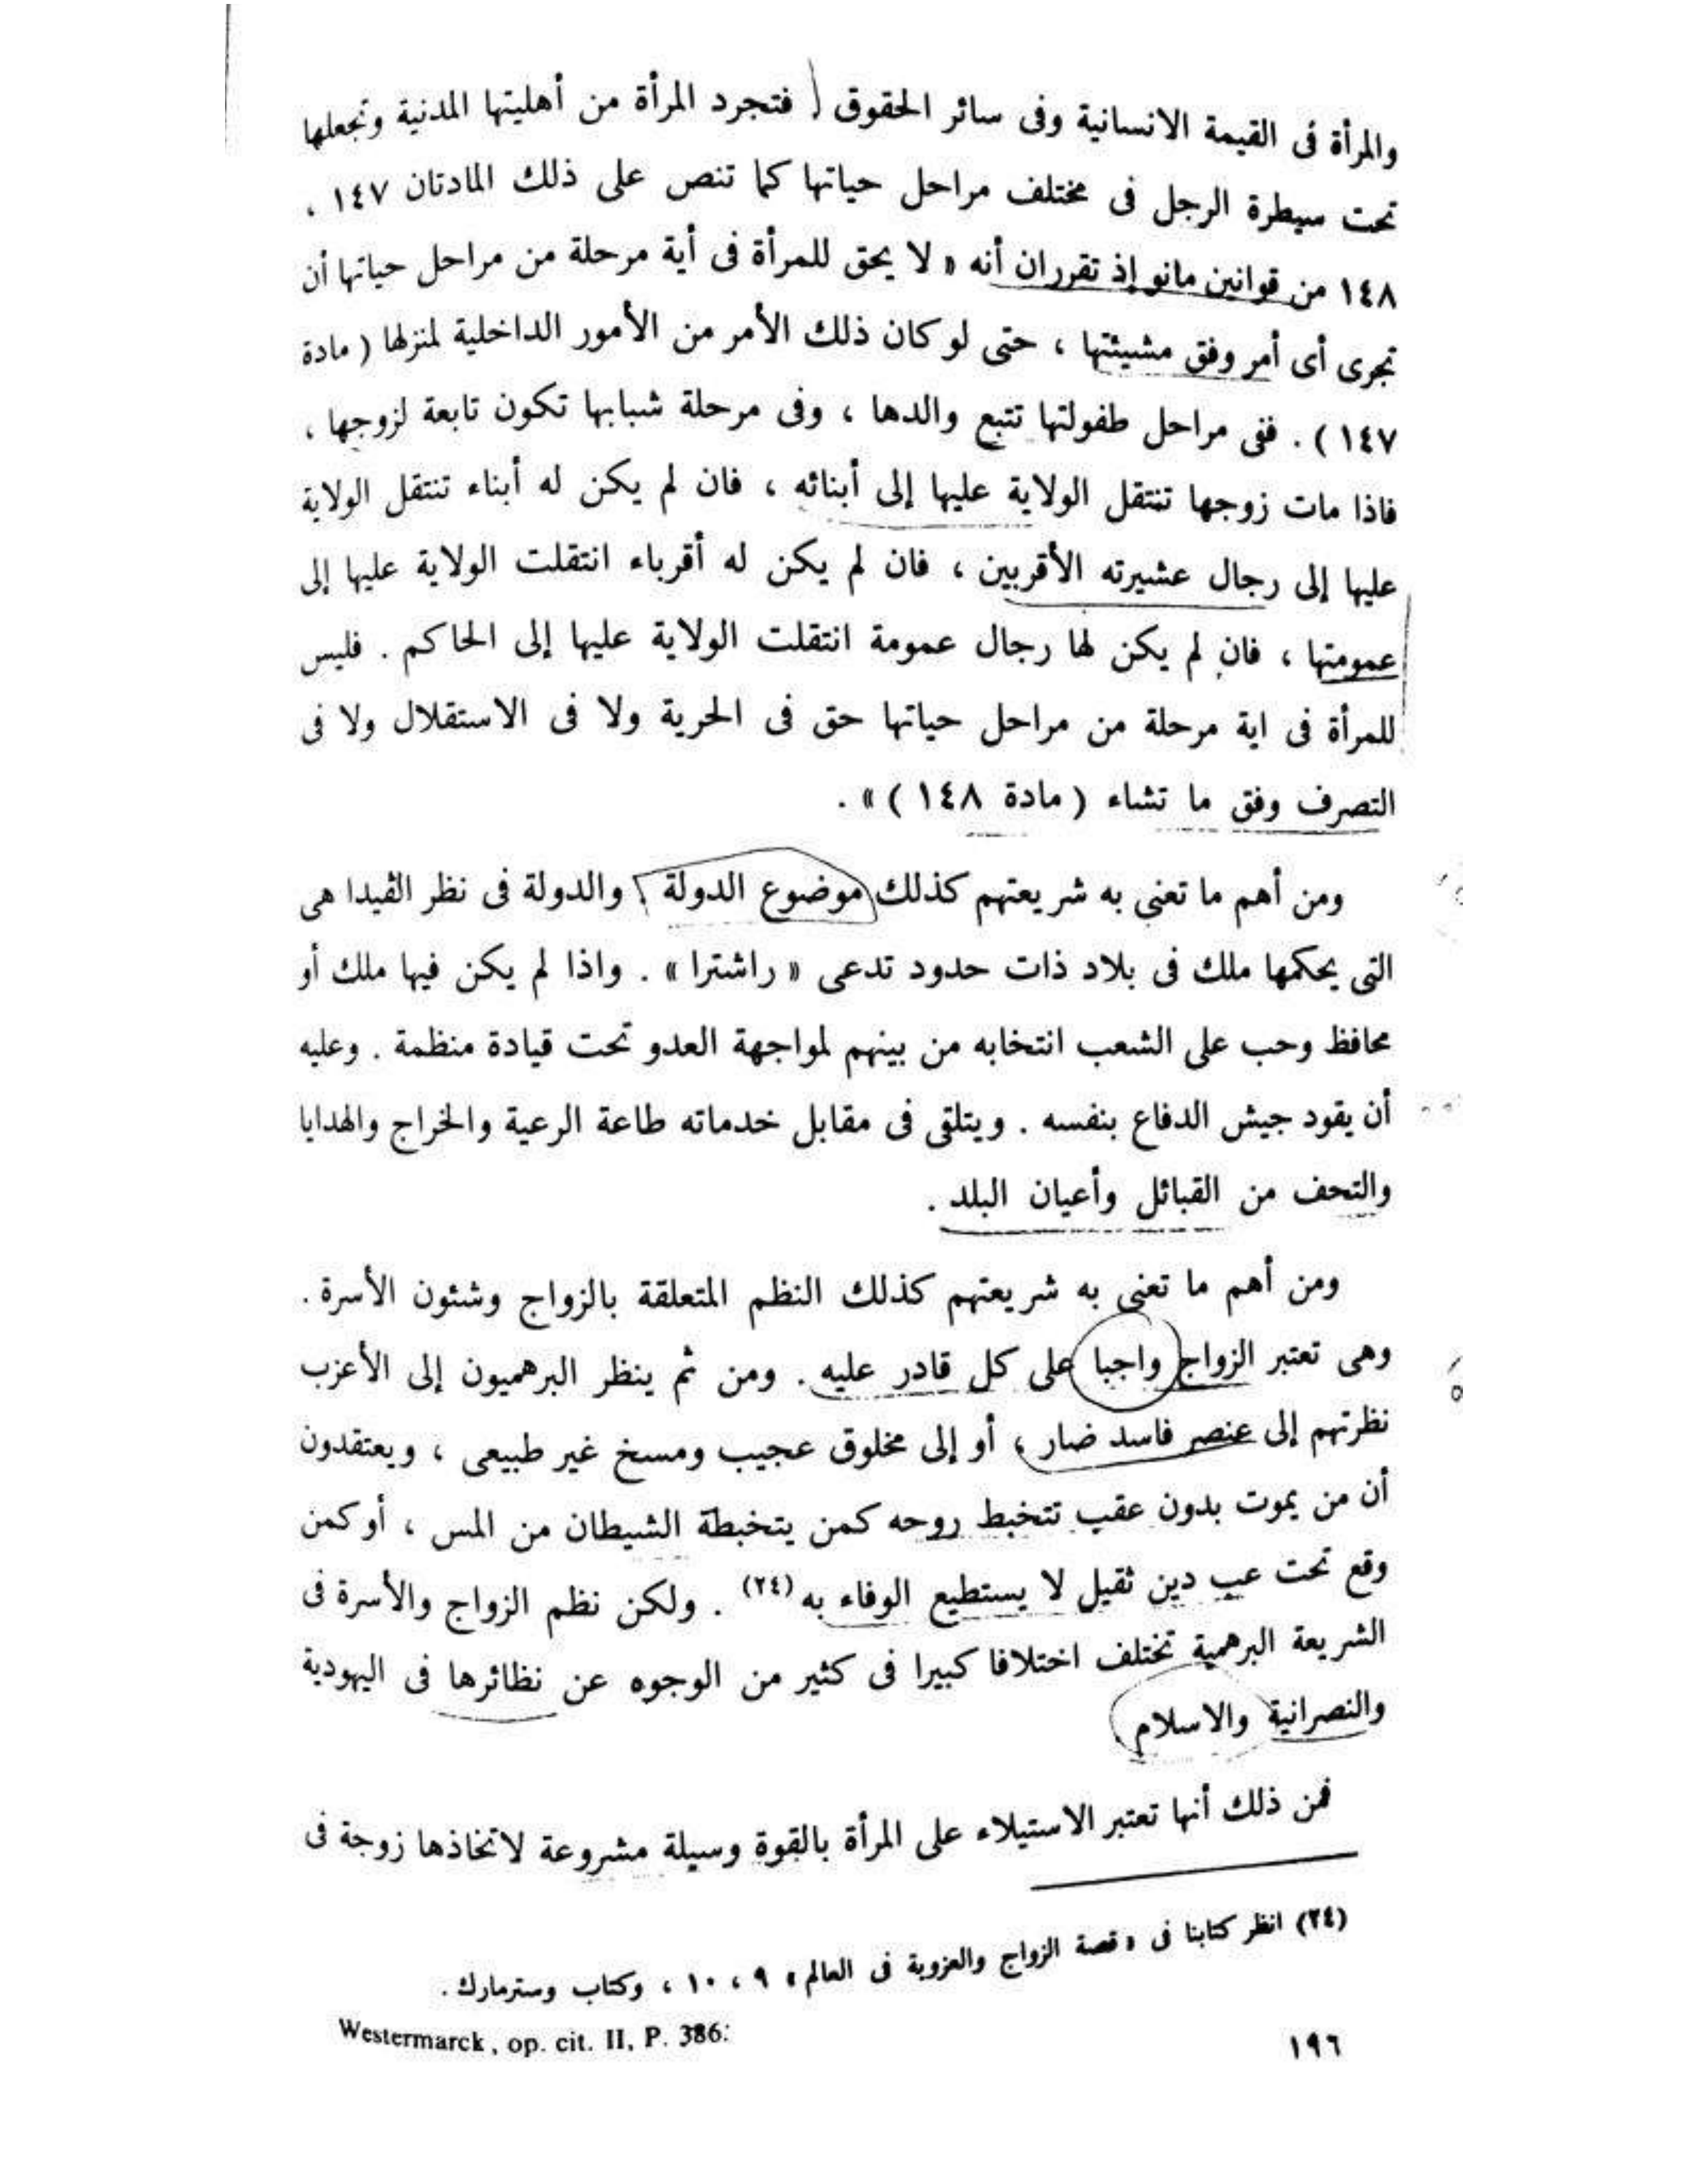 والمرأة فى القيمة الانسانية وفى سائر الحقوق ( فتجرد المرأة من أهليتها المدنية وتجعلها
تحت سيطرة الرجل فى مختلف مراحل حياتها كما تنص على ذلك المادتان ١٤٧ ،
١٤٨ من قوانين مانو إذ تقرران أنه « لا يحق للمرأة فى أية مرحلة من مراحل حياتها أن
تجرى أى أمر وفق مشيئتها ، حتى لو كان ذلك الأمر من الأمور الداخلية لمنزلها ( مادة
١٤٧ ) . ففى مراحل طفولتها تتبع والدها ، وفى مرحلة شبابها تكون تابعة لزوجها ،
فاذا مات زوجها تنتقل الولاية عليها إلى أبنائه ، فان لم يكن له أبناء تنتقل الولاية
عليها إلى رجال عشيرته الأقربين ، فان لم يكن له أقرباء انتقلت الولاية عليها إلى
عمومتها ، فان لم يكن لها رجال عمومة انتقلت الولاية عليها إلى الحاكم . فليس
للمرأة فى اية مرحلة من مراحل حياتها حق فى الحرية ولا فى الاستقلال ولا فى
التصرف وفق ما تشاء ( مادة ١٤٨ ) » .
ومن أهم ما تعنى به شريعتهم كذلك موضوع الدولة والدولة فى نظر الڤيدا هى
التى يحكمها ملك فى بلاد ذات حدود تدعى « راشترا » . واذا لم يكن فيها ملك أو
محافظ وحب على الشعب انتخابه من بينهم لمواجهة العدو تحت قيادة منظمة . وعليه
أن يقود جيش الدفاع بنفسه . ويتلقى فى مقابل خدماته طاعة الرعية والخراج والهدايا
والتحف من القبائل وأعيان البلد .
ومن أهم ما تعنى به شريعتهم كذلك النظم المتعلقة بالزواج وشئون الأسرة .
وهى تعتبر الزواج واجبا على كل قادر عليه . ومن ثم ينظر البرهميون إلى الأعزب
نظرتهم إلى عنصر فاسد ضار ، أو إلى مخلوق عجيب ومسخ غير طبيعى ، ويعتقدون
أن من يموت بدون عقب تتخبط روحه كمن يتخبطة الشيطان من المس ، أو كمن
وقع تحت عب دين ثقيل لا يستطيع الوفاء به (٢٤) . ولكن نظم الزواج والأسرة فى
الشريعة البرهمية تختلف اختلافا كبيرا فى كثير من الوجوه عن نظائرها فى اليهودية
والنصرانية والاسلام
فمن ذلك أنها تعتبر الاستيلاء على المرأة بالقوة وسيلة مشروعة لاتخاذها زوجة فى
(٢٤) انظر كتابنا فى « قصة الزواج والعزوبة فى العالم » ٩ ، ١٠ ، وكتاب وسترمارك .
Westermarck, op. cit. II, P. 386:
١٩٦